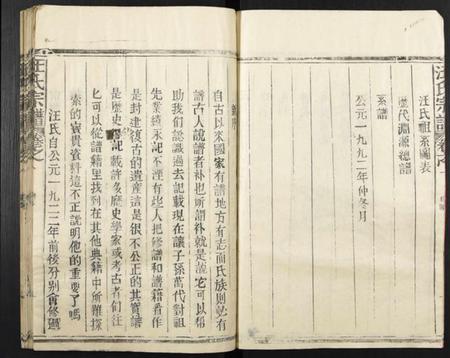 汪氏宗譜
汪氏祖系圖表
歷代淵源總譜
系譜
公元一九九二年仲冬月
自古以來國家有譜地方有志而氏族則必有
譜古人說譜者補也所謂補就是說它可以幫
助我們認識過去記載現在讓子孫萬代對祖
先業績永記不湮有些人把修譜和譜籍看作
是封建復古的遺產這是很不公正的其實譜
是歷史記載許多歷史學家或考古者們往
匕可以從譜籍里找到在其他典籍中所難探
索的寶貴資料這不正說明他的重要了嗎
汪氏自公元一九二二年前後分別會修過
汪氏宗譜